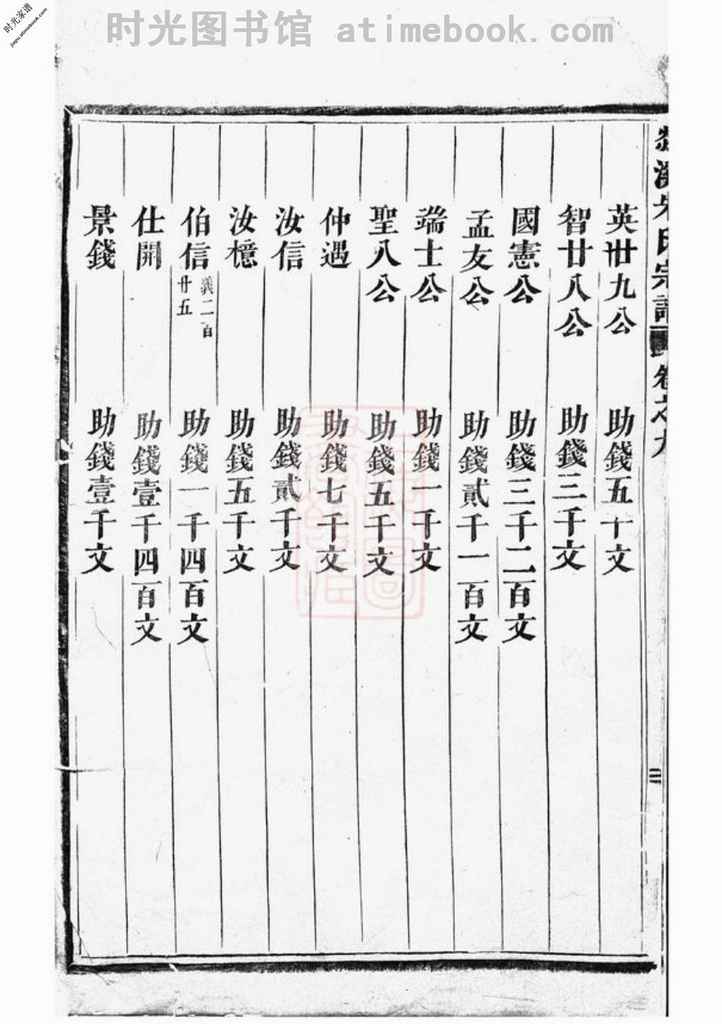 时光图书馆 atimebook.com
时光家谱
jiapu.atimebook.com
宋氏宗譜 卷之九
英卄九公 助錢五十文
智廿八公 助錢三千文
國憲公 助錢三千二百文
孟友公 助錢貳千一百文
端士公 助錢一千文
聖八公 助錢五千文
仲遇 助錢七千文
汝信 助錢貳千文
汝檍 助錢五千文
伯信 義二百廿五 助錢一千四百文
仕開 助錢壹千四百文
景錢 助錢壹千文
二